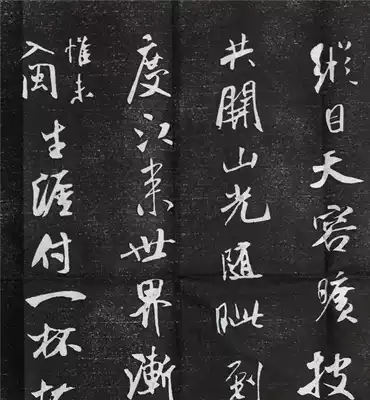 縱目天容曠披
共開山光隨眺到
度江來世界漸
惟未
入閩
生涯付一杯